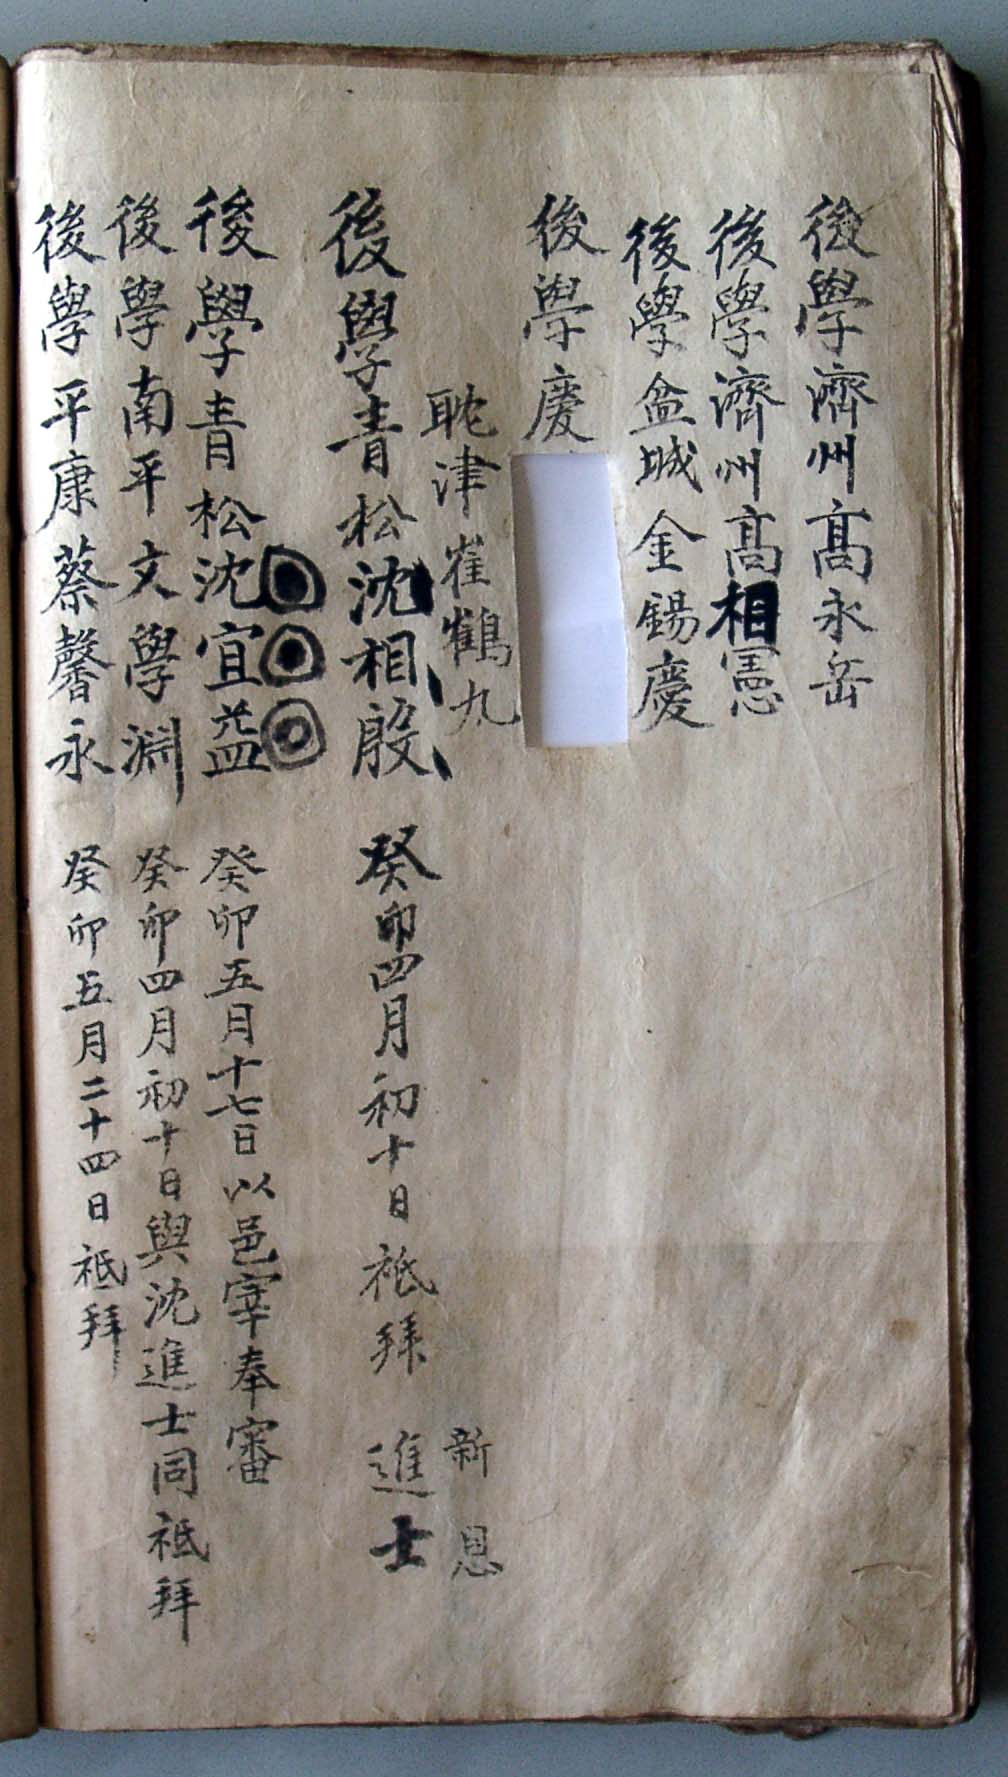 後學濟州高永岳
後學濟州高相憲
後學盆城金錫慶
後學慶
耽津崔鶴九
新恩
後學青松沈相殷 癸卯四月初十日祗拜 進士
後學青松沈宜益 癸卯五月十七日以邑宰奉審
後學南平文學淵 癸卯四月初十日與沈進士同祗拜
後學平康蔡馨永 癸卯五月二十四日祗拜